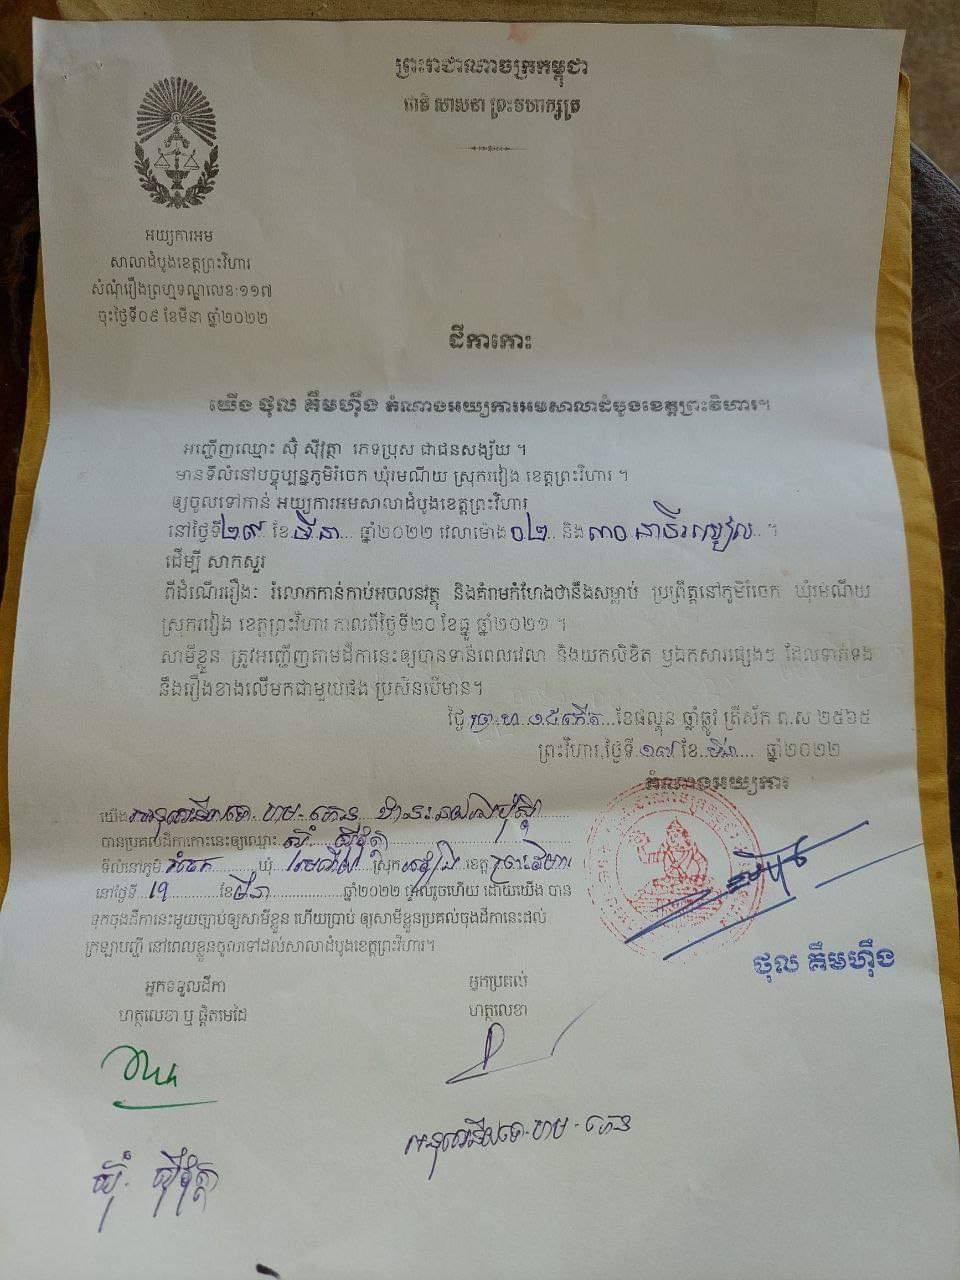 ព្រះរាជាណាចក្រកម្ពុជា
ជាតិ សាសនា ព្រះមហាក្សត្រ
អយ្យការអម
សាលាដំបូងខេត្តព្រះវិហារ
សំណុំរឿងព្រហ្មទណ្ឌលេខ:១១៧
ចុះថ្ងៃទី០៩ ខែមីនា ឆ្នាំ២០២២
ដីកាកោះ
យើង ថុល គឹមហ៊ឹង តំណាងអយ្យការអមសាលាដំបូងខេត្តព្រះវិហារ។
អញ្ជើញឈ្មោះ ស៊ុំ ស៊ីវុត្ថា ភេទប្រុស ជាជនសង្ស័យ ។
មានទីលំនៅបច្ចុប្បន្នភូមិរំចេក ឃុំរមណីយ ស្រុករវៀង ខេត្តព្រះវិហារ ។
ឲ្យចូលទៅកាន់ អយ្យការអមសាលាដំបូងខេត្តព្រះវិហារ
នៅថ្ងៃទី២៩ ខែ មីនា ឆ្នាំ២០២២ វេលាម៉ោង ០២ និង ៣០ នាទីរសៀល ។
ដើម្បី សាកសួរ
ពីដំណើររឿង: រំលោភកាន់កាប់អចលនវត្ថុ និងគំរាមកំហែងថានឹងសម្លាប់ ប្រព្រឹត្តនៅភូមិរំចេក ឃុំរមណីយ
ស្រុករវៀង ខេត្តព្រះវិហារ កាលពីថ្ងៃទី២០ ខែធ្នូ ឆ្នាំ២០២១ ។
សាមីខ្លួន ត្រូវអញ្ជើញតាមដីកានេះឲ្យបានទាន់ពេលវេលា និងយកលិខិត ឬឯកសារផ្សេងៗ ដែលទាក់ទង
នឹងរឿងខាងលើមកជាមួយផង ប្រសិនបើមាន។
ថ្ងៃ ព្រហ ១៥កើត ខែផល្គុន ឆ្នាំឆ្លូវ ត្រីស័ក ព.ស ២៥៦៥
ព្រះវិហារ,ថ្ងៃទី ១៧ ខែ មីនា ឆ្នាំ២០២២
តំណាងអយ្យការ
យើង
បានប្រគល់ដីកាកោះនេះឲ្យឈ្មោះ ស៊ុំ ស៊ីវុត្ថា
ទីលំនៅភូមិ រំចេក ឃុំ រមណីយ ស្រុក រវៀង ខេត្ត ព្រះវិហារ
នៅថ្ងៃទី 19 ខែ មីនា ឆ្នាំ២០២២ ផ្ទាល់រួចហើយ ដោយយើង បាន
ទុកចុងដីកានេះមួយច្បាប់ឲ្យសាមីខ្លួន ហើយប្រាប់ ឲ្យសាមីខ្លួនប្រគល់ចុងដីកានេះដល់
ក្រឡាបញ្ជី នៅពេលខ្លួនចូលទៅដល់សាលាដំបូងខេត្តព្រះវិហារ។
ថុល គឹមហ៊ឹង
អ្នកទទួលដីកា
ហត្ថលេខា ឬ ផ្តិតមេដៃ
អ្នកប្រគល់
ហត្ថលេខា
ស៊ុំ ស៊ីវុត្ថា